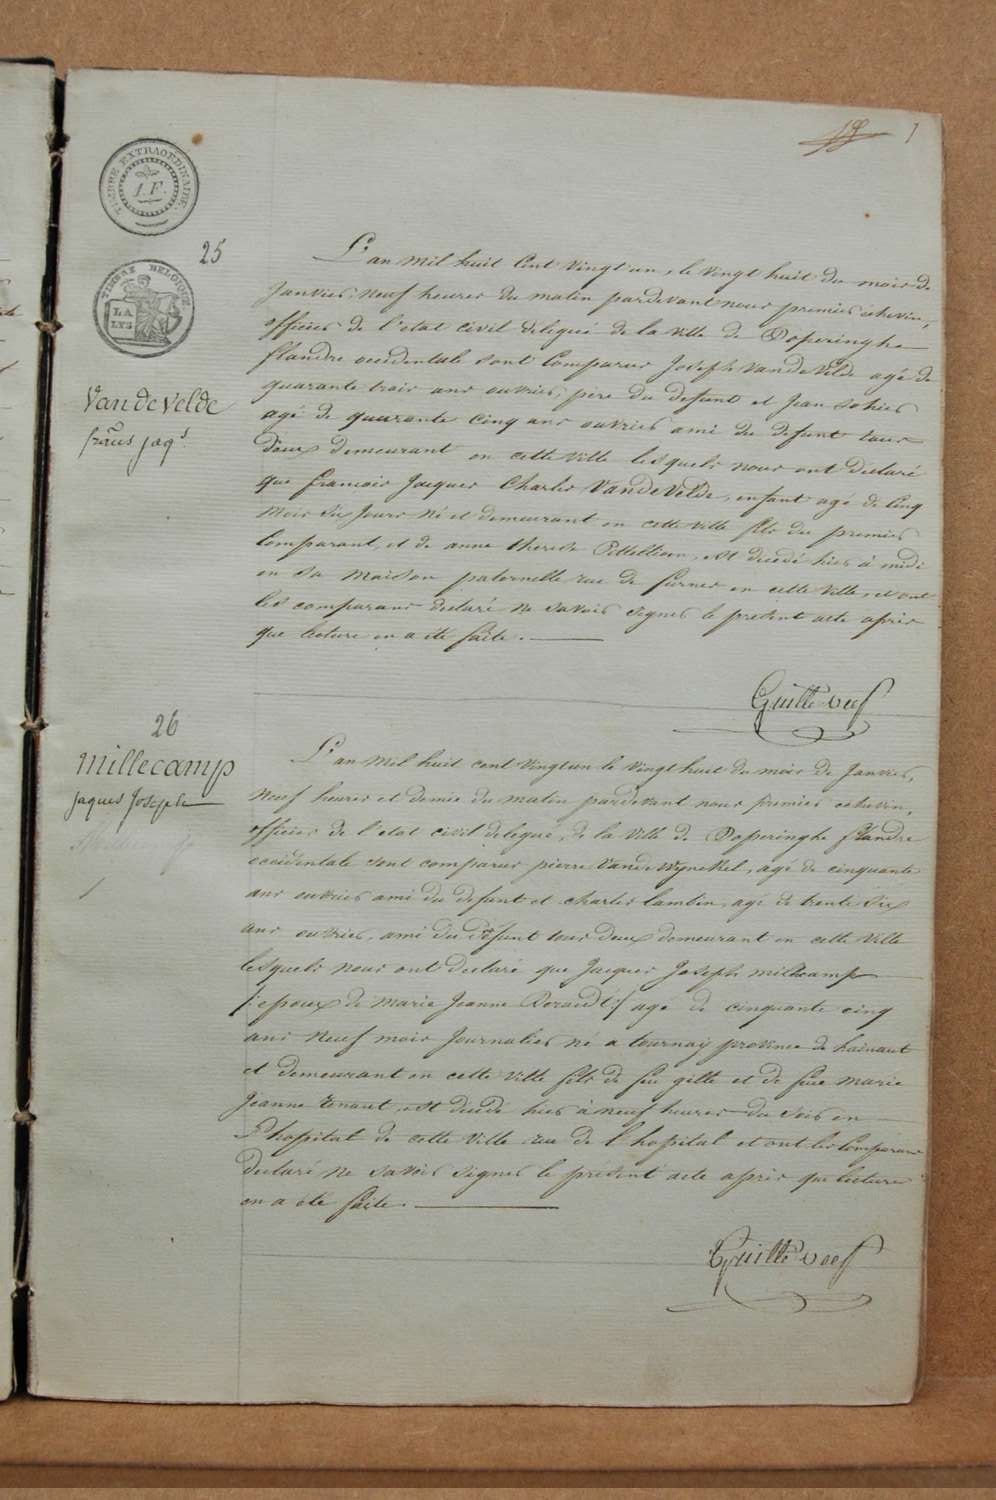 TIMBRE EXTRAORDINAIRE.
1.F.
TIMBRE BELGIQUE
LA
LYS
25
Vandevelde
frans jaqs
L'an mil huit Cent vingt un, le vingt huit du mois de
Janvier, neuf heures du matin pardevant nous premier echevin,
officier de l'etat civil delegué de la ville de Poperinghe
flandre occidentale sont Comparus Joseph Vandevelde agé de
quarante trois ans ouvrier, pere du defunt et Jean Sohier
agé de quarante cinq ans ouvrier ami du defunt tous
deux demeurant en cette ville lesquels nous ont déclaré
que francois Jacques Charles Vandevelde, enfant agé de cinq
mois six jours né et demeurant en cette ville fils du premier
Comparant, et de anne therese, est decedé hier à midi
en sa maison paternelle rue de furnes en cette ville, et ont
les comparans declaré ne savoir signer le présent acte après
que lecture en a été faite.
26
Millecamp
jaques Joseph
L'an mil huit cent vingtun le vingt huit du mois de Janvier,
neuf heures et demie du matin pardevant nous premier echevin,
officier de l'etat civil delegué, de la ville de Poperinghe flandre
occidentale sont comparus pierre Vandewynckel, agé de cinquante
ans ouvrier ami du defunt et charles lambin, agé de trente six
ans ouvrier, ami du défunt tous deux demeurant en cette ville
lesquels nous ont declaré que Jacques Joseph millecamp
/: epoux de marie Jeanne :/ agé de cinquante cinq
ans neuf mois journalier né a tournay province de hainaut
et demeurant en cette ville fils de feu gille et de feue marie
Jeanne renaut, est décédé hier à neuf heures du soir en
L'hopital de cette ville rue de l'hopital et ont les Comparans
declaré ne savoir signer le présent acte après que lecture
en a été faite.